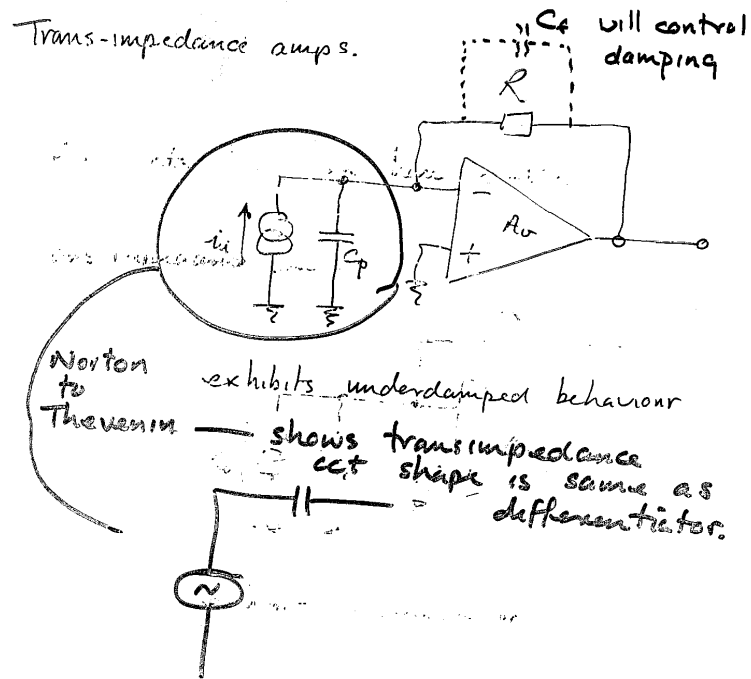 Trans-impedance amps.
Cf will control
damping
R
Av
−
+
ii
Cp
Norton
to
Thevenin
exhibits underdamped behaviour
shows transimpedance
cct shape is same as
differentiator.
~